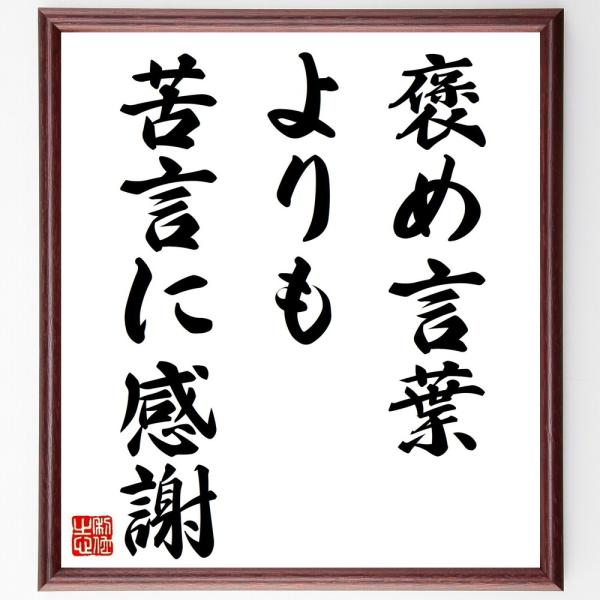 褒め言葉
よりも
苦言に感謝